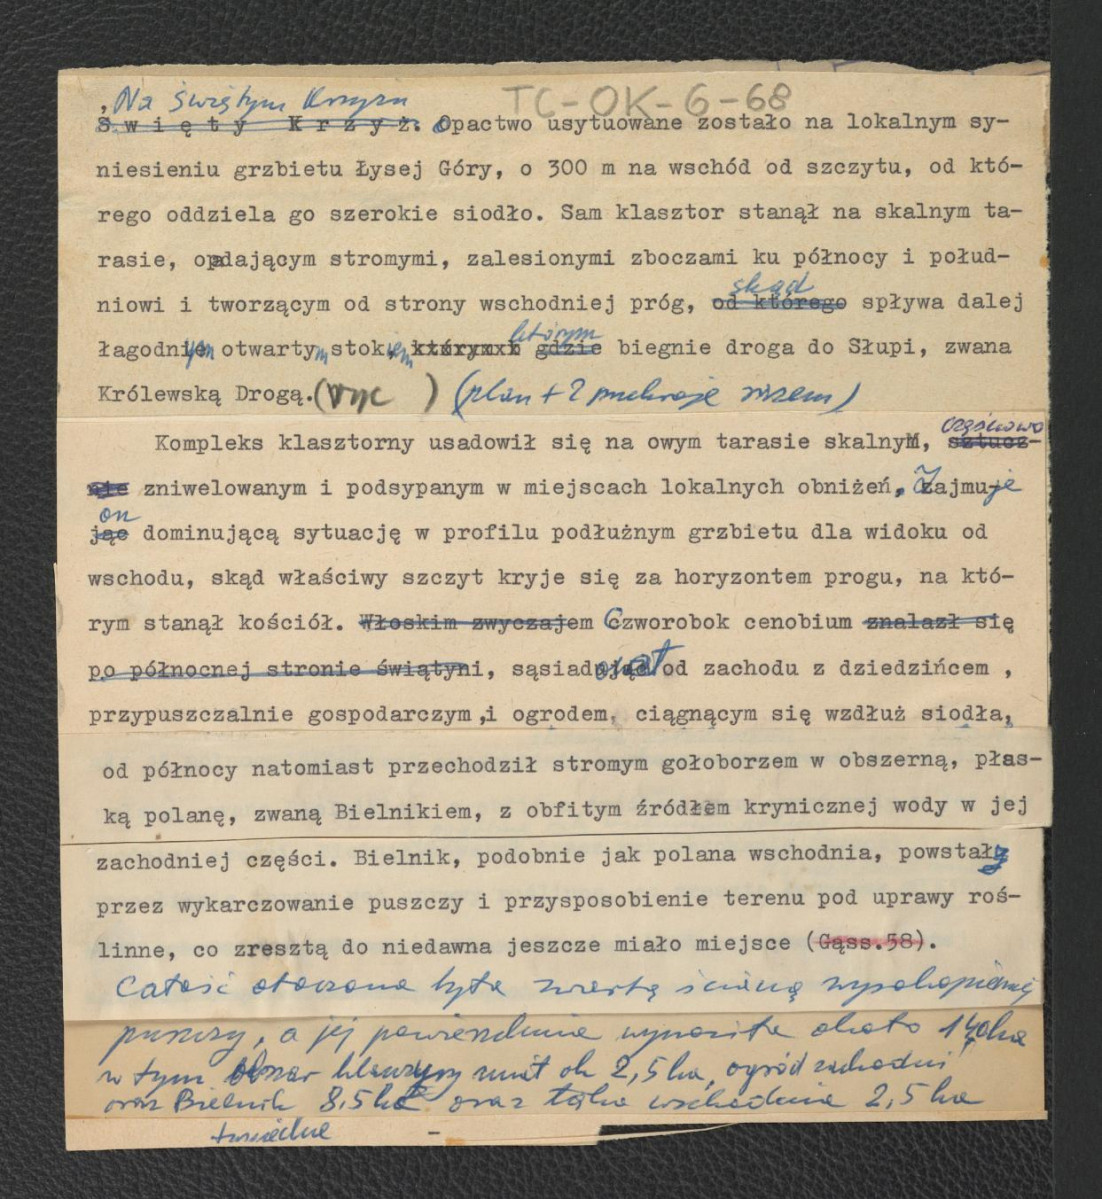 Na Świętym Krzyżu TC-OK-6-68
Święty Krzyż. Opactwo usytuowane zostało na lokalnym sy-
niesieniu grzbietu Łysej Góry, o 300 m na wschód od szczytu, od któ-
rego oddziela go szerokie siodło. Sam klasztor stanął na skalnym ta-
rasie, opadającym stromymi, zalesionymi zboczami ku północy i połud-
skąd
niowi i tworzącym od strony wschodniej próg, od którego spływa dalej
którym
łagodnym otwartym stokiem gdzie biegnie droga do Słupi, zwana
Królewską Drogą. (ryc ) (plan + 2 przekroje razem)
częściowo
Kompleks klasztorny usadowił się na owym tarasie skalnyM, sztucz-
nie zniwelowanym i podsypanym w miejscach lokalnych obniżeń. Zajmuje
on
jąc dominującą sytuację w profilu podłużnym grzbietu dla widoku od
wschodu, skąd właściwy szczyt kryje się za horyzontem progu, na któ-
rym stanął kościół. Włoskim zwyczajem Czworobok cenobium znalazł się
po północnej stronie świątyni, sąsiadował od zachodu z dziedzińcem ,
przypuszczalnie gospodarczym,i ogrodem, ciągnącym się wzdłuż siodła,
od północy natomiast przechodził stromym gołoborzem w obszerną, płas-
ką polanę, zwaną Bielnikiem, z obfitym źródłem krynicznej wody w jej
zachodniej części. Bielnik, podobnie jak polana wschodnia, powstały
przez wykarczowanie puszczy i przysposobienie terenu pod uprawy roś-
linne, co zresztą do niedawna jeszcze miało miejsce (Gąss.58).
Całość otoczona była zwartą ścianą wysokopiennej
puszczy, a jej powierzchnia wynosiła około 14 ha
w tym obszar klauzury miał ok 2,5 ha, ogród zachodni
oraz Bielnik 8,5 ha oraz łąka wschodnia 2,5 ha